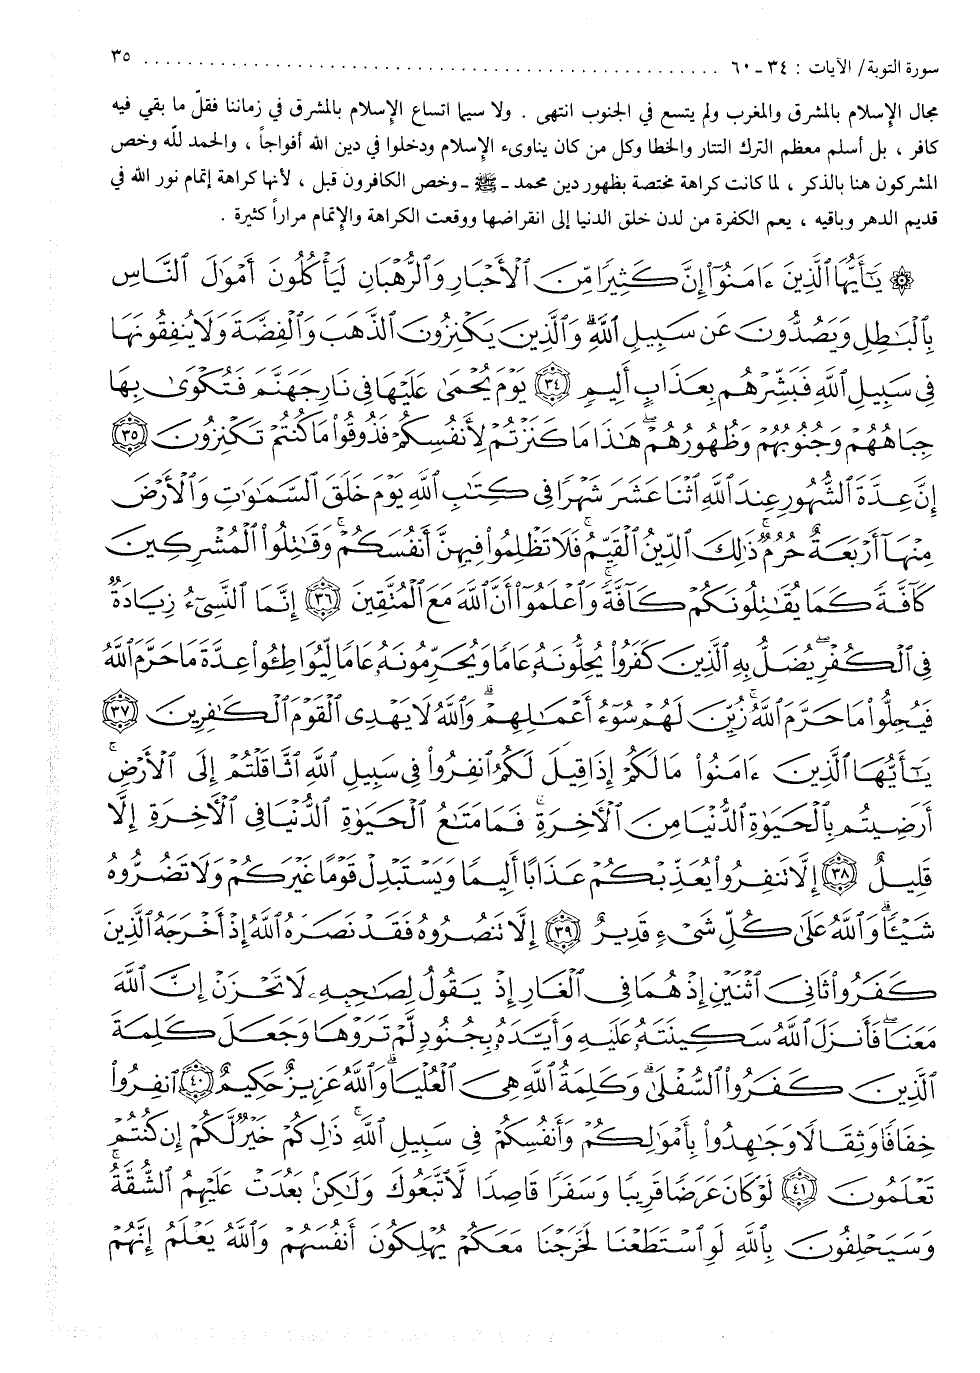 سورة التوبة/ الآيات : ٣٤ ـ ٦٠ ........................................................ ٣٥
مجال الإسلام بالمشرق والمغرب ولم يتسع في الجنوب انتهى . ولا سيما اتساع الإسلام بالمشرق في زماننا فقلّ ما بقي فيه
كافر ، بل أسلم معظم الترك التتار والخطا وكل من كان يناوىء الإسلام ودخلوا في دين الله أفواجاً ، والحمد للّه وخص
المشركون هنا بالذكر ، لما كانت كراهة مختصة بظهور دين محمد ـ ﷺ ـ وخص الكافرون قبل ، لأنها كراهة إتمام نور الله في
قديم الدهر وباقيه ، يعم الكفرة من لدن خلق الدنيا إلى انقراضها ووقعت الكراهة والإتمام مراراً كثيرة .
۞ يَٰٓأَيُّهَا ٱلَّذِينَ ءَامَنُوٓاْ إِنَّ كَثِيرًا مِّنَ ٱلۡأَحۡبَارِ وَٱلرُّهۡبَانِ لَيَأۡكُلُونَ أَمۡوَٰلَ ٱلنَّاسِ
بِٱلۡبَٰطِلِ وَيَصُدُّونَ عَن سَبِيلِ ٱللَّهِۗ وَٱلَّذِينَ يَكۡنِزُونَ ٱلذَّهَبَ وَٱلۡفِضَّةَ وَلَا يُنفِقُونَهَا
فِي سَبِيلِ ٱللَّهِ فَبَشِّرۡهُم بِعَذَابٍ أَلِيمٖ ٣٤ يَوۡمَ يُحۡمَىٰ عَلَيۡهَا فِي نَارِ جَهَنَّمَ فَتُكۡوَىٰ بِهَا
جِبَاهُهُمۡ وَجُنُوبُهُمۡ وَظُهُورُهُمۡۖ هَٰذَا مَا كَنَزۡتُمۡ لِأَنفُسِكُمۡ فَذُوقُواْ مَا كُنتُمۡ تَكۡنِزُونَ ٣٥
إِنَّ عِدَّةَ ٱلشُّهُورِ عِندَ ٱللَّهِ ٱثۡنَا عَشَرَ شَهۡرٗا فِي كِتَٰبِ ٱللَّهِ يَوۡمَ خَلَقَ ٱلسَّمَٰوَٰتِ وَٱلۡأَرۡضَ
مِنۡهَآ أَرۡبَعَةٌ حُرُمٞۚ ذَٰلِكَ ٱلدِّينُ ٱلۡقَيِّمُۚ فَلَا تَظۡلِمُواْ فِيهِنَّ أَنفُسَكُمۡۚ وَقَٰتِلُواْ ٱلۡمُشۡرِكِينَ
كَآفَّةٗ كَمَا يُقَٰتِلُونَكُمۡ كَآفَّةٗۚ وَٱعۡلَمُوٓاْ أَنَّ ٱللَّهَ مَعَ ٱلۡمُتَّقِينَ ٣٦ إِنَّمَا ٱلنَّسِيٓءُ زِيَادَةٞ
فِي ٱلۡكُفۡرِۖ يُضَلُّ بِهِ ٱلَّذِينَ كَفَرُواْ يُحِلُّونَهُۥ عَامٗا وَيُحَرِّمُونَهُۥ عَامٗا لِّيُوَاطِـُٔواْ عِدَّةَ مَا حَرَّمَ ٱللَّهُ
فَيُحِلُّواْ مَا حَرَّمَ ٱللَّهُۚ زُيِّنَ لَهُمۡ سُوٓءُ أَعۡمَٰلِهِمۡۗ وَٱللَّهُ لَا يَهۡدِي ٱلۡقَوۡمَ ٱلۡكَٰفِرِينَ ٣٧
يَٰٓأَيُّهَا ٱلَّذِينَ ءَامَنُواْ مَا لَكُمۡ إِذَا قِيلَ لَكُمُ ٱنفِرُواْ فِي سَبِيلِ ٱللَّهِ ٱثَّاقَلۡتُمۡ إِلَى ٱلۡأَرۡضِۚ
أَرَضِيتُم بِٱلۡحَيَوٰةِ ٱلدُّنۡيَا مِنَ ٱلۡأٓخِرَةِۚ فَمَا مَتَٰعُ ٱلۡحَيَوٰةِ ٱلدُّنۡيَا فِي ٱلۡأٓخِرَةِ إِلَّا
قَلِيلٌ ٣٨ إِلَّا تَنفِرُواْ يُعَذِّبۡكُمۡ عَذَابًا أَلِيمٗا وَيَسۡتَبۡدِلۡ قَوۡمًا غَيۡرَكُمۡ وَلَا تَضُرُّوهُ
شَيۡـٔٗاۗ وَٱللَّهُ عَلَىٰ كُلِّ شَيۡءٖ قَدِيرٌ ٣٩ إِلَّا تَنصُرُوهُ فَقَدۡ نَصَرَهُ ٱللَّهُ إِذۡ أَخۡرَجَهُ ٱلَّذِينَ
كَفَرُواْ ثَانِيَ ٱثۡنَيۡنِ إِذۡ هُمَا فِي ٱلۡغَارِ إِذۡ يَقُولُ لِصَٰحِبِهِۦ لَا تَحۡزَنۡ إِنَّ ٱللَّهَ
مَعَنَاۖ فَأَنزَلَ ٱللَّهُ سَكِينَتَهُۥ عَلَيۡهِ وَأَيَّدَهُۥ بِجُنُودٖ لَّمۡ تَرَوۡهَا وَجَعَلَ كَلِمَةَ
ٱلَّذِينَ كَفَرُواْ ٱلسُّفۡلَىٰۗ وَكَلِمَةُ ٱللَّهِ هِيَ ٱلۡعُلۡيَاۗ وَٱللَّهُ عَزِيزٌ حَكِيمٌ ٤٠ ٱنفِرُواْ
خِفَافٗا وَثِقَالٗا وَجَٰهِدُواْ بِأَمۡوَٰلِكُمۡ وَأَنفُسِكُمۡ فِي سَبِيلِ ٱللَّهِۚ ذَٰلِكُمۡ خَيۡرٞ لَّكُمۡ إِن كُنتُمۡ
تَعۡلَمُونَ ٤١ لَوۡ كَانَ عَرَضٗا قَرِيبٗا وَسَفَرٗا قَاصِدٗا لَّٱتَّبَعُوكَ وَلَٰكِنۢ بَعُدَتۡ عَلَيۡهِمُ ٱلشُّقَّةُۚ
وَسَيَحۡلِفُونَ بِٱللَّهِ لَوِ ٱسۡتَطَعۡنَا لَخَرَجۡنَا مَعَكُمۡ يُهۡلِكُونَ أَنفُسَهُمۡ وَٱللَّهُ يَعۡلَمُ إِنَّهُمۡ